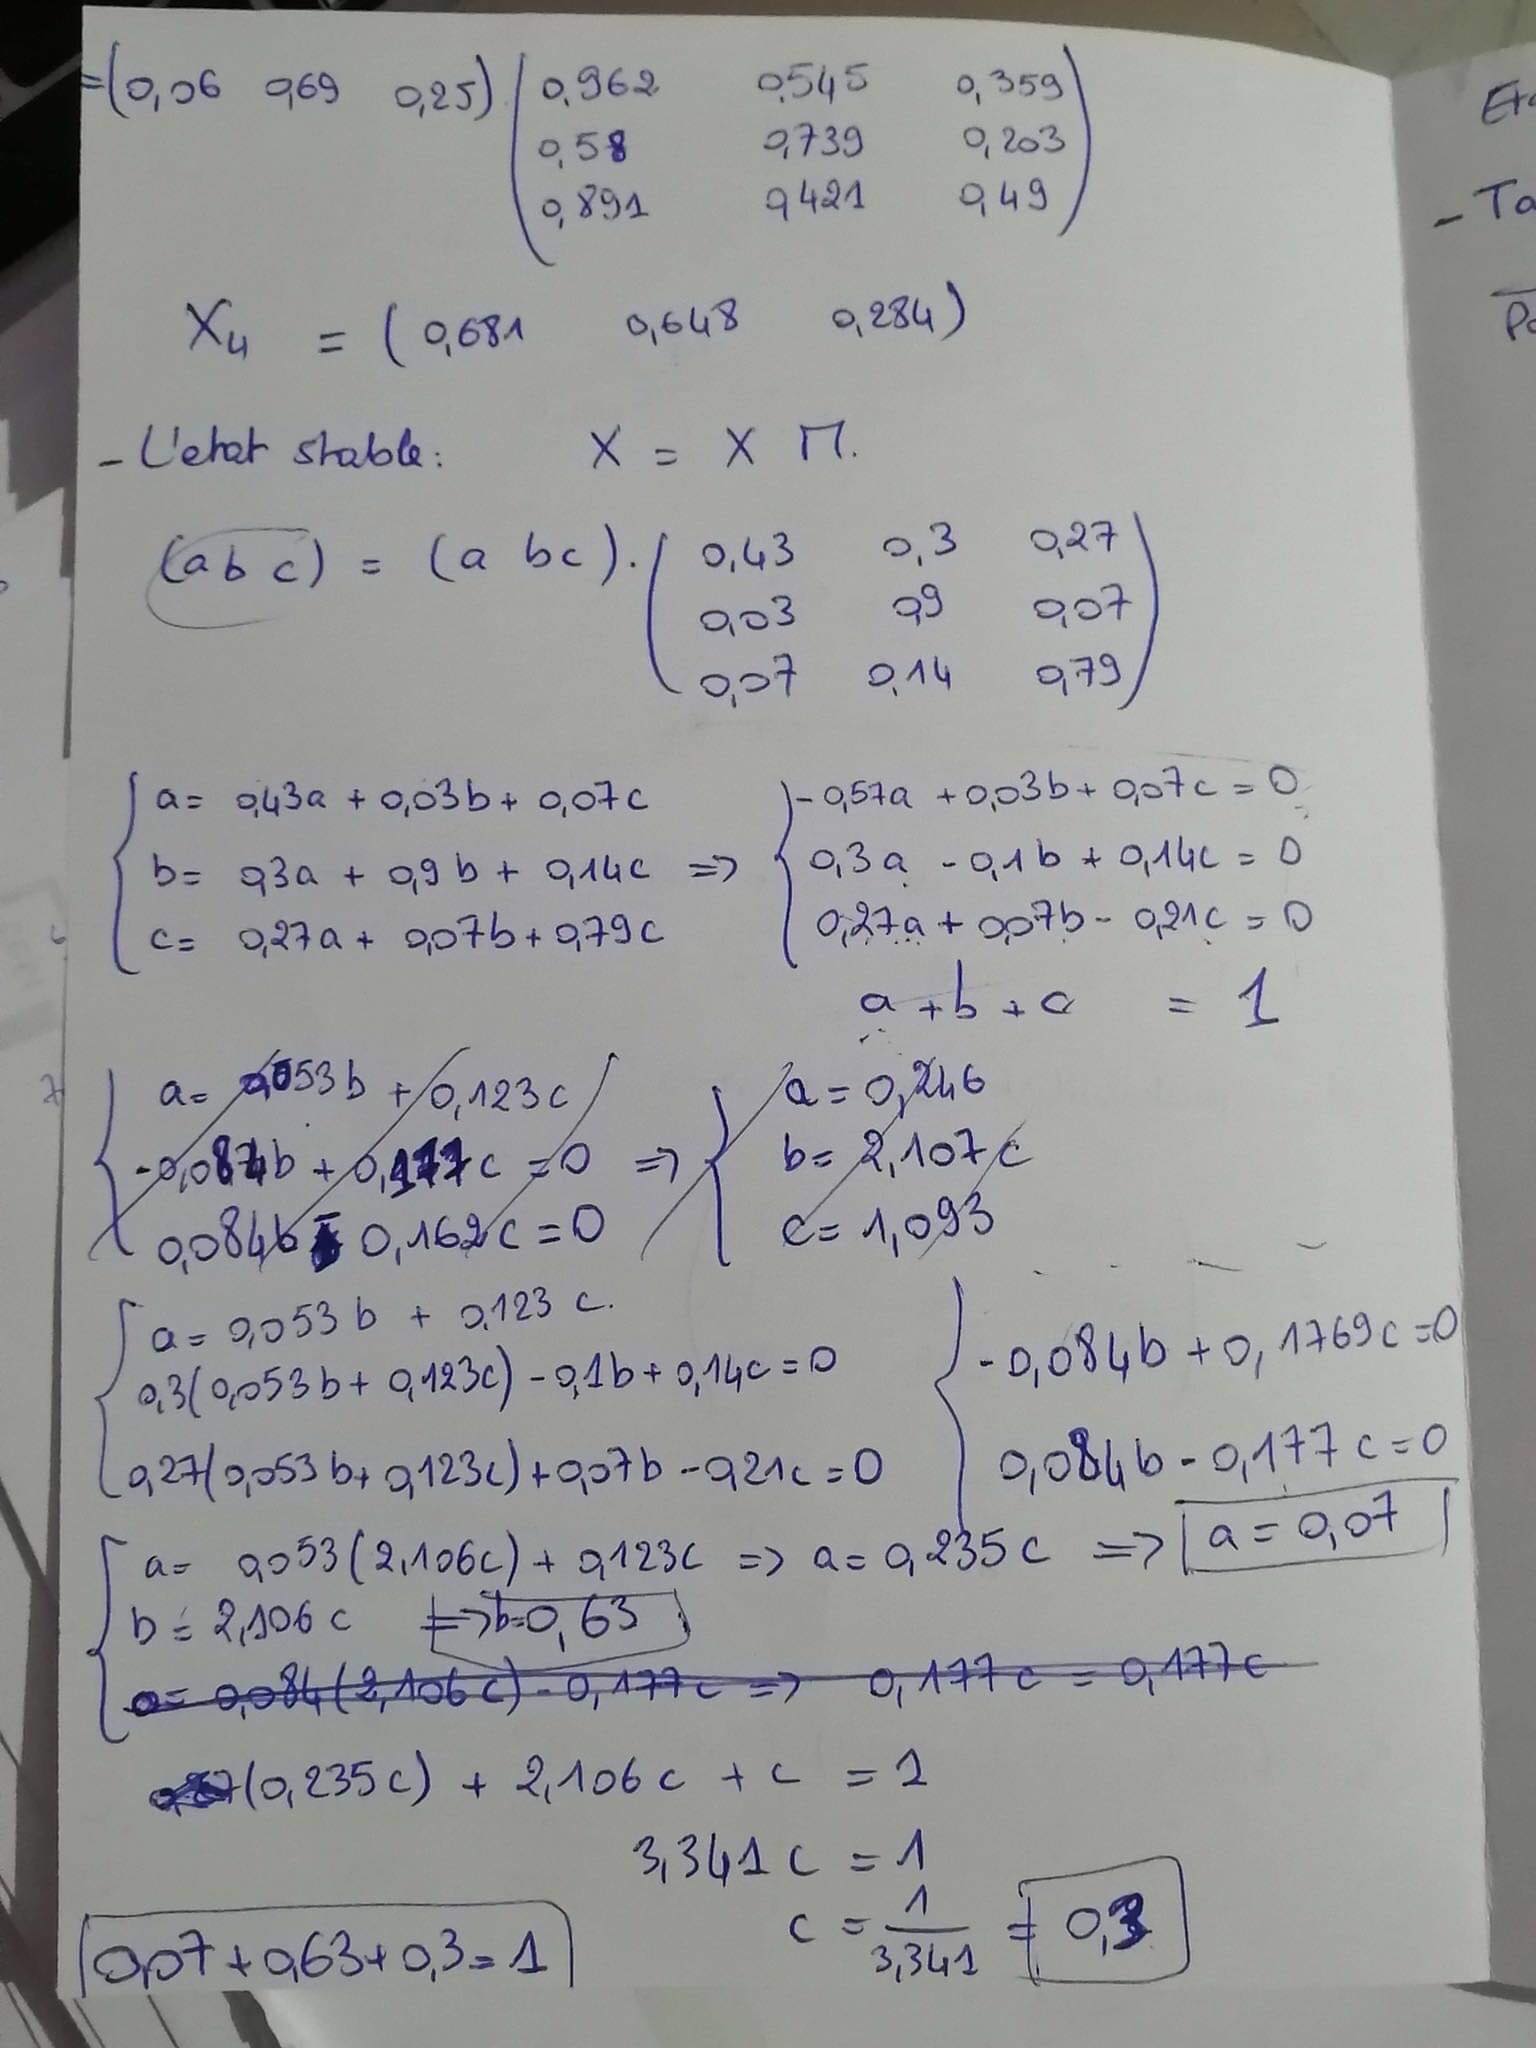 =(0,06 0,69 0,25). (0,962 0,545 0,359
0,58 0,739 0,203
0,891 0,421 0,49)
X4 = (0,681 0,648 0,284)
- L'etat stable: X = X Π.
(a b c) = (a b c). (0,43 0,3 0,27
0,03 0,9 0,07
0,07 0,14 0,79)
{ a= 0,43a + 0,03b + 0,07c { -0,57a + 0,03b + 0,07c = 0
b= 0,3a + 0,9b + 0,14c => 0,3a - 0,1b + 0,14c = 0
c= 0,27a + 0,07b + 0,79c 0,27a + 0,07b - 0,21c = 0
a + b + c = 1
{ a= 0,053b + 0,123c { a = 0,246
-0,084b + 0,177c = 0 => b= 2,107c
0,084b - 0,162c = 0 c= 1,093
{ a= 0,053b + 0,123c.
0,3(0,053b + 0,123c) - 0,1b + 0,14c = 0 { -0,084b + 0,1769c = 0
0,27(0,053b + 0,123c) + 0,07b - 0,21c = 0 0,084b - 0,177c = 0
{ a= 0,053(2,106c) + 0,123c => a= 0,235c => a = 0,07
b= 2,106c => b=0,63
0= 0,084(2,106c) - 0,177c => 0,177c = 0,177c
(0,235c) + 2,106c + c = 1
3,341c = 1
c = 1/3,341 = 0,3
0,07 + 0,63 + 0,3 = 1
- Ta